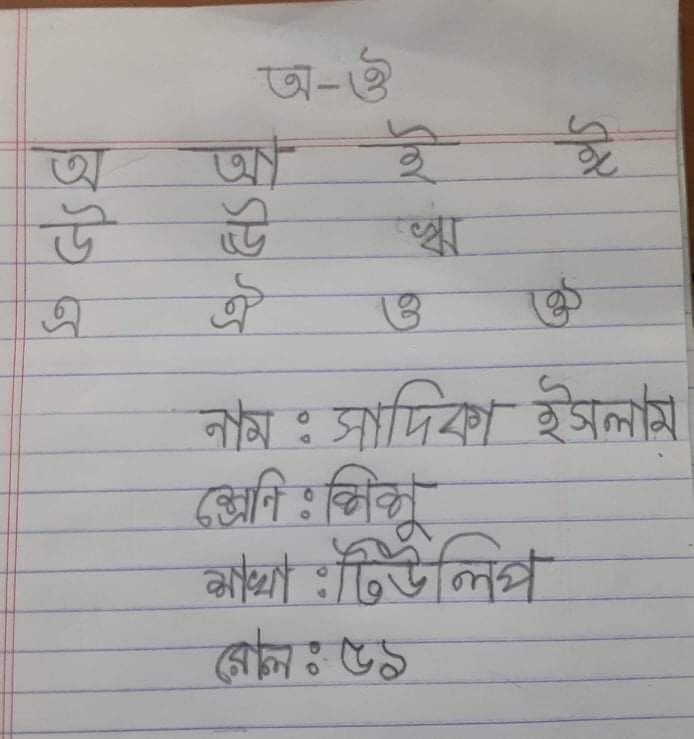 অ-ঔ
অ আ ই ঈ
উ ঊ ঋ
এ ঐ ও ঔ
নাম : সাদিকা ইসলাম
শ্রেনি : শিশু
শাখা : টিউলিপ
রোল : ৫১